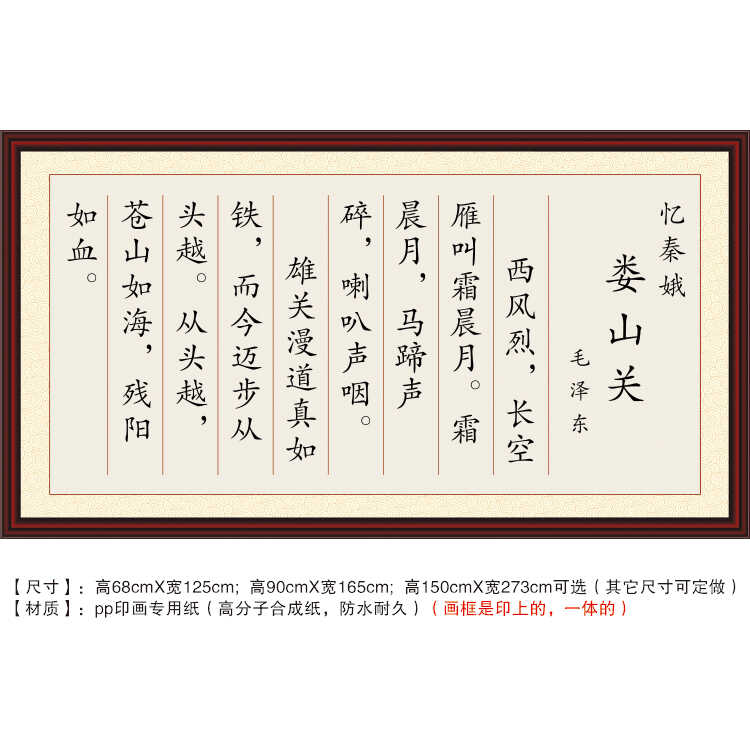 忆秦娥
娄山关
毛泽东
西风烈，长空
雁叫霜晨月。霜
晨月，马蹄声
碎，喇叭声咽。
雄关漫道真如
铁，而今迈步从
头越。从头越，
苍山如海，残阳
如血。
【尺寸】：高68cmX宽125cm; 高90cmX宽165cm; 高150cmX宽273cm可选（其它尺寸可定做）
【材质】：pp印画专用纸（高分子合成纸，防水耐久）（画框是印上的，一体的）